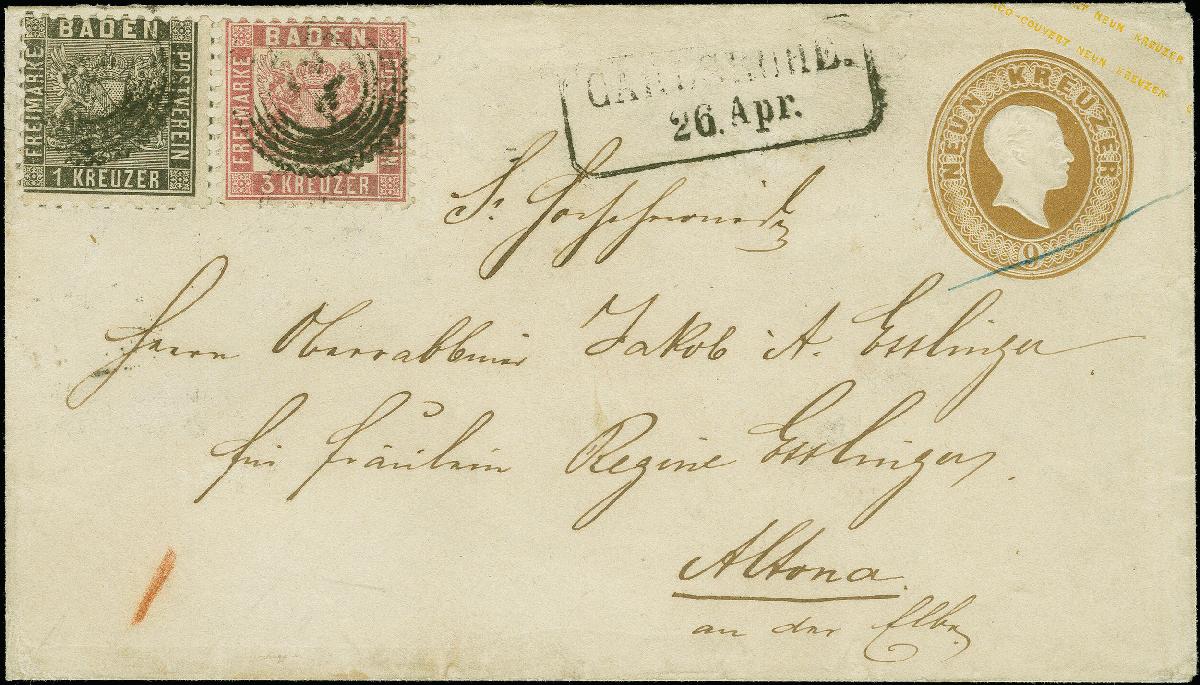 BADEN
FREIMARKE
POSTVEREIN
1 KREUZER
BADEN
FREIMARKE
3 KREUZER
CARLSRUHE.
26. Apr.
NEUN KREUZER
CO-COUVERT NEUN KREUZER
NEUN KREUZER
9
Sr
Herrn Oberrabbiner Jakob A. Esslinger
für Fräulein Regine Esslinger
Altona
an der Elbe